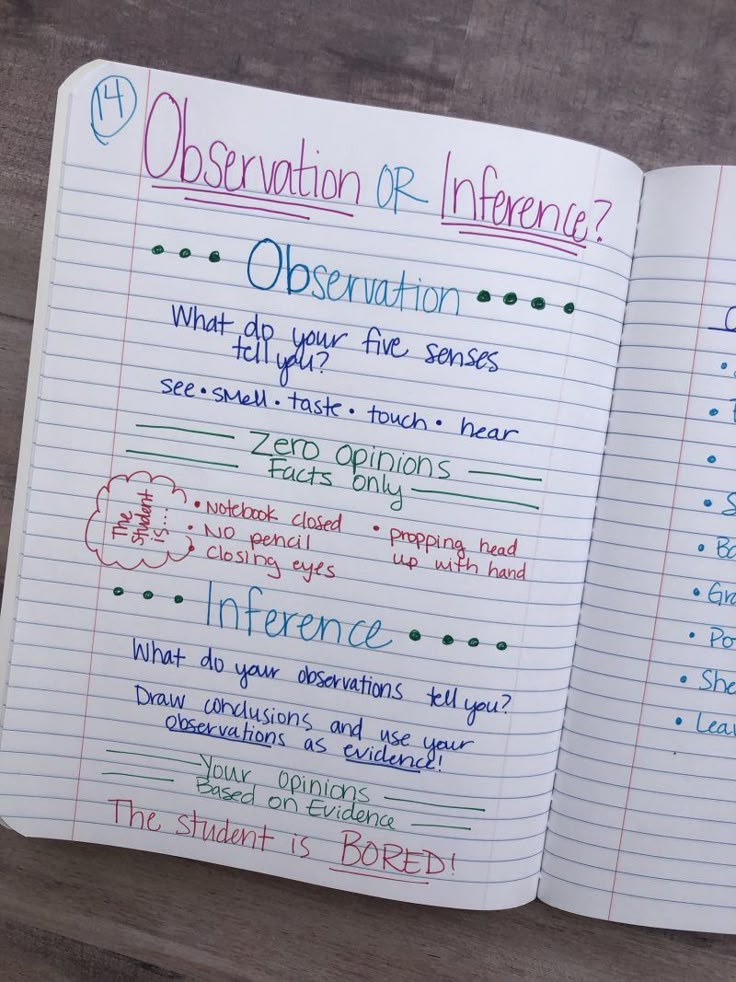 14
Observation OR Inference?
Observation
What do your five senses
tell you?
see • smell • taste • touch • hear
Zero opinions
Facts only
The
student
is...
• Notebook closed
• No pencil
• closing eyes
• propping head
up with hand
Inference
What do your observations tell you?
Draw conclusions and use your
observations as evidence!
Your opinions
Based on Evidence
The student is BORED!